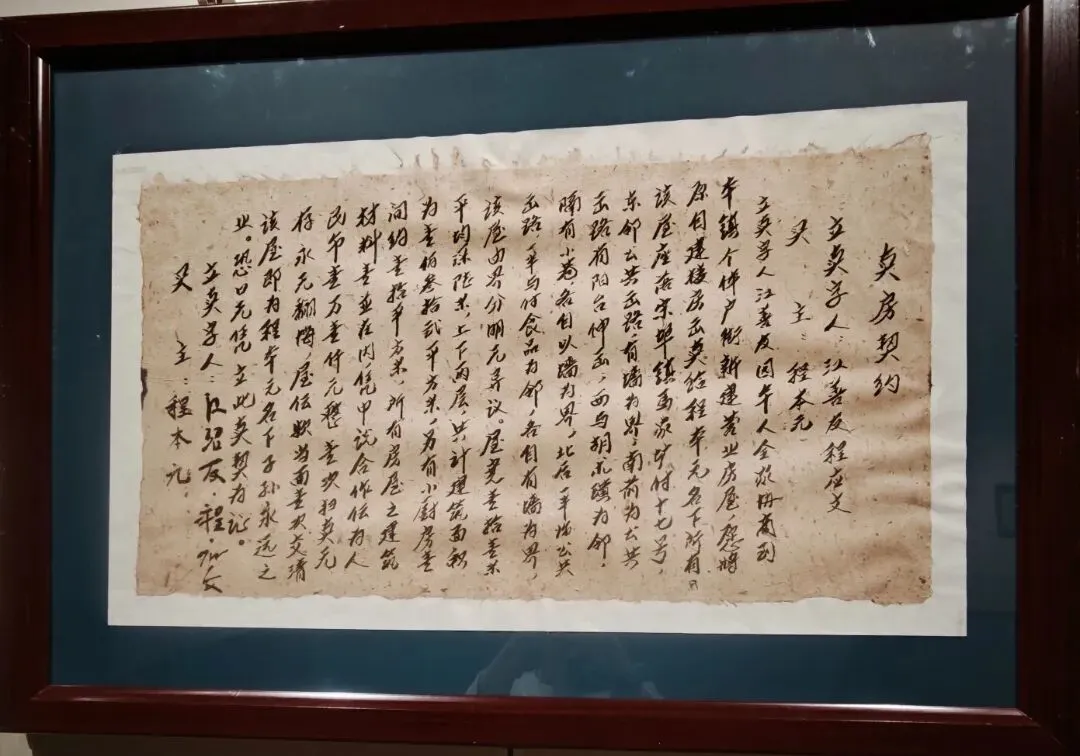 卖房契约
立卖字人：江善友程应文
买主：程本元
立卖字人江善友因本人全家册商到
本镇个体户街新建营业房屋，愿将
原自建楼房出卖给程本元名下所有。
该屋座落宗埠镇付十七号，
东邻公共出路，有墙为界；南前为公共
出路有阳台伸出；西与胡为邻，
隔有小巷，各自以墙为界，北后一半公共
出路，一半与付食品为邻，各自有墙为界，
该屋四界分明无异议。屋宽壹拾壹米
平均深陆米，上下两层，共计建筑面积
为壹佰叁拾贰平方米，另有小厨房壹
间约壹拾平方米，所有房屋之建筑
材料壹并在内，凭中说合作价为人
民币壹万壹仟元整，壹次扫卖无
存永无翻悔，屋价款当面壹次交清
该屋即为程本元名下子孙永远之
业。恐口无凭立此卖契为证。
立卖字人：江善友．程应文
买主：程本元．